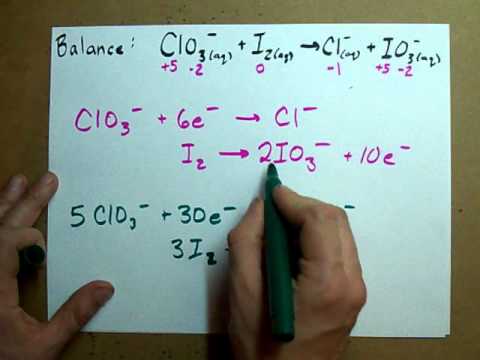 Balance: ClO₃⁻(aq) + I₂(aq) → Cl⁻(aq) + IO₃⁻(aq)
+5 -2 0 -1 +5 -2
ClO₃⁻ + 6e⁻ → Cl⁻
I₂ → 2IO₃⁻ + 10e⁻
5 ClO₃⁻ + 30e⁻
3I₂